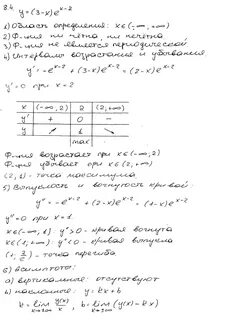 8.4. y=(3-x)e^{x-2}
1) Область определения: x∈(-∞,+∞)
2) Ф-ция ни чётна, ни нечётна
3) Ф-ция не является периодической
4) Интервалы возрастания и убывания.
y' = -e^{x-2} + (3-x)e^{x-2} = (2-x)e^{x-2}
y'=0 при x=2
x (-∞,2) 2 (2,+∞)
y' + 0 -
y ↗ 1 ↘
max
Ф-ция возрастает при x∈(-∞,2)
Ф-ция убывает при x∈(2,+∞)
(2,1) - точка максимума
5) Выпуклость и вогнутость кривой:
y'' = -e^{x-2} + (2-x)e^{x-2} = (1-x)e^{x-2}
y''=0 при x=1.
x∈(-∞,1): y''>0 - кривая вогнута
x∈(1,+∞): y''<0 - кривая выпукла
(1; 2/e) - точка перегиба
6) Асимптоты:
а) вертикальные: отсутствуют
б) наклонные: y=kx+b
k=lim_{x→±∞} y(x)/x, b=lim_{x→±∞}(y(x)-kx)